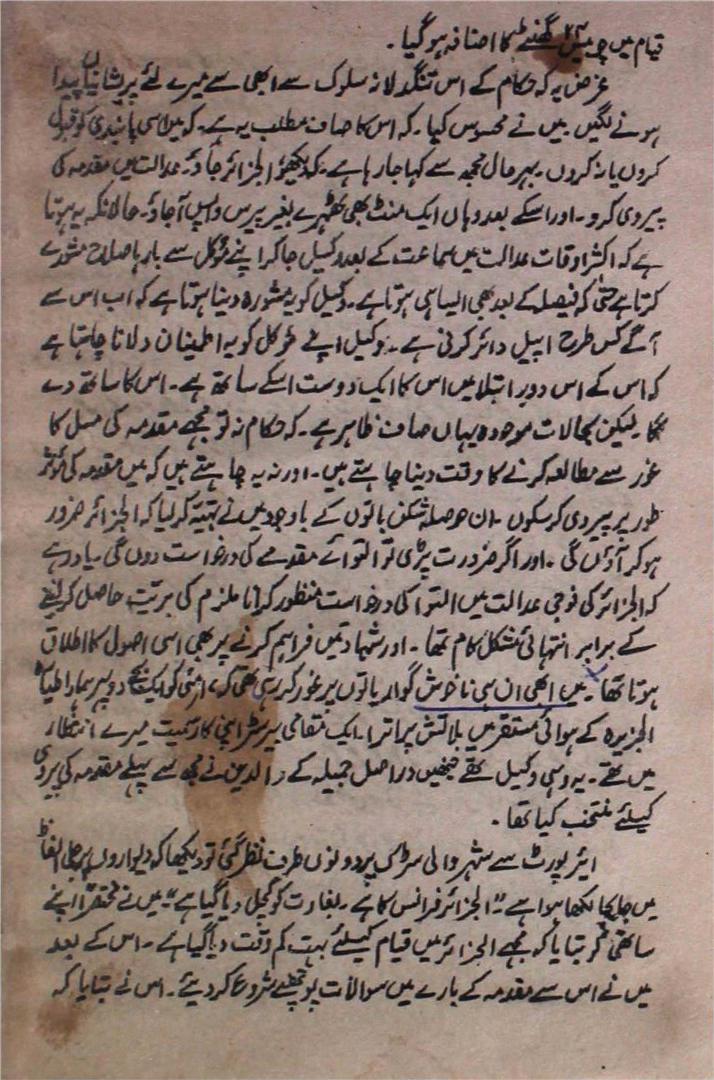 قیام میں چوبیس ۲۴ گھنٹے کا اضافہ ہوگیا۔
غرض یہ کہ حکام کے اس تنگدلانہ سلوک سے ابھی سے میرے لئے پریشانیاں پیدا
ہونے لگیں۔ میں نے محسوس کیا۔ کہ اس کا صاف مطلب یہ ہے۔ کہ میں اسی پابندی کو قبول
کروں یا نہ کروں۔ بہرحال مجھ سے کہا جا رہا ہے۔ کہ دیکھو الجزائر جاؤ۔ عدالت میں مقدمہ کی
پیروی کرو۔ اور اسکے بعد وہاں ایک منٹ بھی ٹھہرے بغیر پیرس واپس آجاؤ۔ حالانکہ یہ ہوتا
ہے کہ اکثر اوقات عدالت میں سماعت کے بعد وکیل جا کر اپنے مؤکل سے بارہا صلاح مشورے
کرتا ہے حتیٰ کہ فیصلہ کے بعد بھی ایسا ہی ہوتا ہے۔ وکیل کو یہ مشورہ دینا ہوتا ہے کہ اب اس سے
آگے کس طرح اپیل دائر کرنی ہے۔ وکیل اپنے مؤکل کو یہ اطمینان دلانا چاہتا ہے
کہ اس کے اس دور ابتلا میں اس کا ایک دوست اسکے ساتھ ہے۔ اس کا ساتھ دے
گا۔ لیکن بحالات موجودہ یہاں صاف ظاہر ہے۔ کہ حکام نہ تو مجھے مقدمہ کی مسل کا
غور سے مطالعہ کرنے کا وقت دینا چاہتے ہیں۔ اور نہ یہ چاہتے ہیں کہ میں مقدمہ کی مؤثر
طور پر پیروی کر سکوں۔ ان حوصلہ شکن باتوں کے باوجود میں نے تہیّہ کر لیا کہ الجزائر ضرور
ہو کر آؤں گی۔ اور اگر ضرورت پڑی تو التوائے مقدمے کی درخواست دوں گی۔ یاد رہے
کہ الجزائر کی فوجی عدالت میں التوا کی درخواست منظور کرانا ملزم کی بریّت حاصل کرنے
کے برابر انتہائی مشکل کام تھا۔ اور شہادتیں فراہم کرنے پر بھی اسی اصول کا اطلاق
ہوتا تھا۔ میں ابھی ان ہی ناخوش گوار باتوں پر غور کر رہی تھی کہ، مئی کو ایک بجے دوپہر ہمارا طیارہ
الجزیرہ کے ہوائی مستقر میں بلاتش پر اترا۔ ایک مقامی بیرسٹر اپنی کار سمیت میرے انتظار
میں تھے۔ یہ وہی وکیل تھے جنھیں دراصل جمیلہ کے والدین نے مجھ سے پہلے مقدمہ کی پیروی
کیلئے منتخب کیا تھا۔
ائیرپورٹ سے شہر والی سڑک پر دونوں طرف نظر گئی تو دیکھا کہ دیواروں پر جلی الفاظ
میں جابجا لکھا ہوا ہے "الجزائر فرانس کا ہے۔ بغاوت کو کچل دیا گیا ہے" میں نے مختصراً اپنے
ساتھی کو بتایا کہ مجھے الجزائر میں قیام کیلئے بہت کم وقت دیا گیا ہے۔ اس کے بعد
میں نے اس سے مقدمہ کے بارے میں سوالات پوچھنے شروع کر دیئے۔ اس نے بتایا کہ